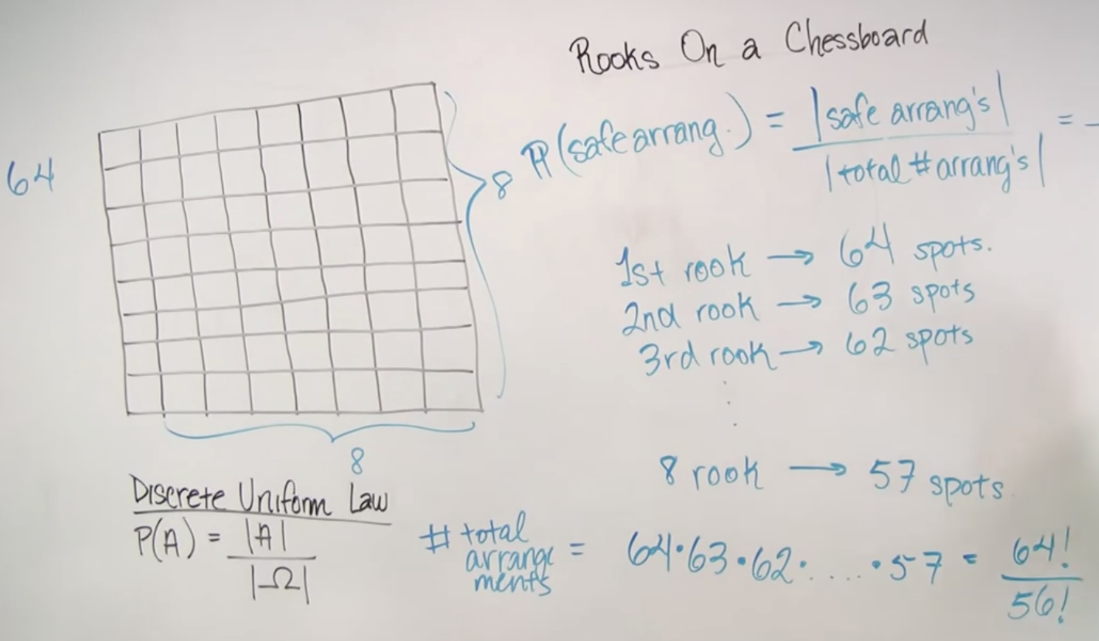 Rooks On a Chessboard
64
8
8
P(safe arrang.) = |safe arrang's| / |total # arrang's| = -
1st rook → 64 spots.
2nd rook → 63 spots
3rd rook → 62 spots
⋮
8 rook → 57 spots
Discrete Uniform Law
P(A) = |A| / |Ω|
# total arrangements = 64·63·62·....·57 = 64! / 56!